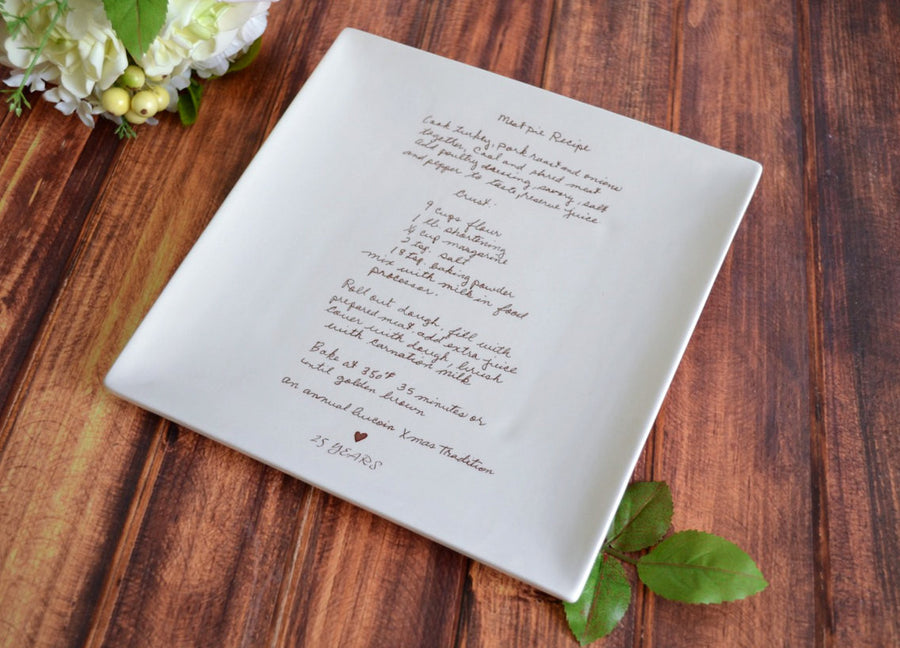 Meat pie Recipe
Cook turkey, pork roast and onions
together, Cool and shred meat
add poultry dressing savory, salt
and pepper to taste, reserve juice
Crust:
9 cups flour
1 lb. shortening
cup margarine
tsp. salt
18 tsp. baking powder
mix with milk in food
processor.
Roll out dough, fill with
prepared meat add extra juice
cover with dough, brush
with carnation milk
Bake at 350° 35 minutes or
until golden brown
an annual Aucoin Xmas Tradition
25 YEARS